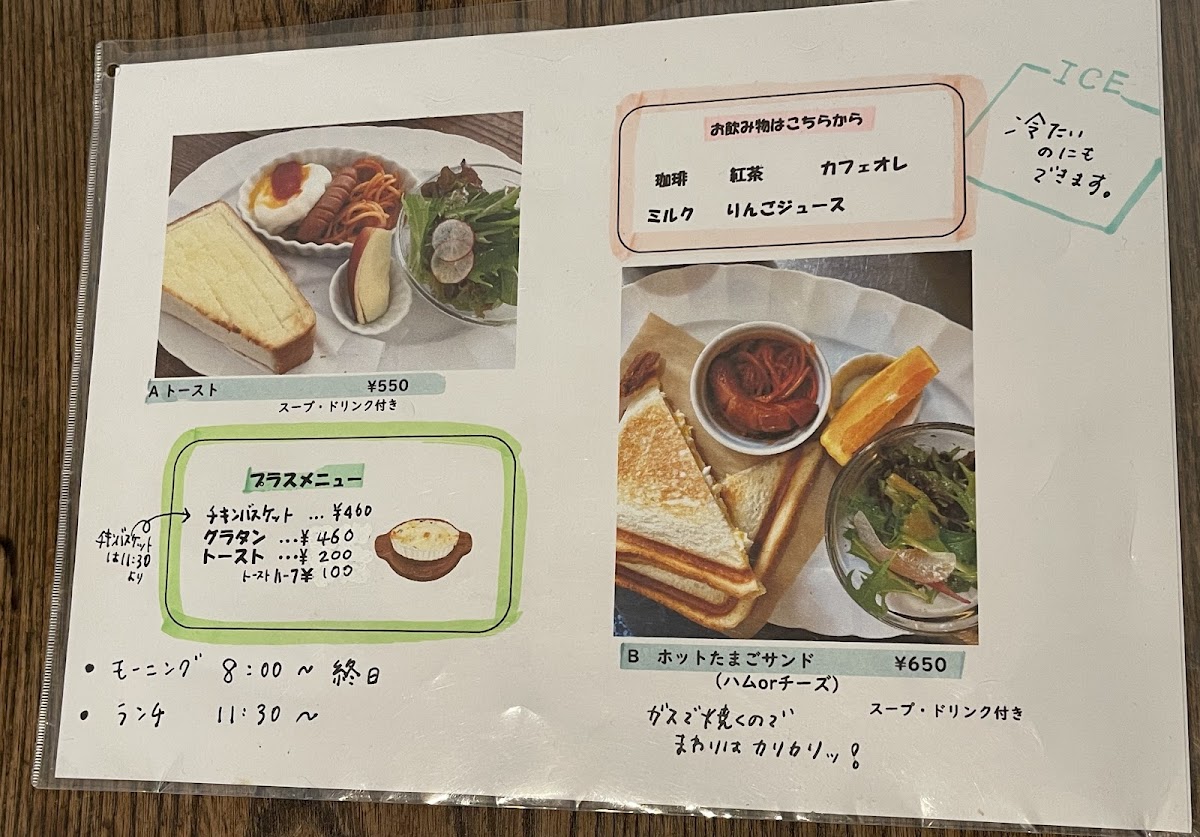 A トースト ¥550
スープ・ドリンク付き
プラスメニュー
チキンバスケット … ¥460
グラタン …¥ 460
トースト …¥ 200
トーストハーフ¥ 100
チキンバスケット
は11:30
より
• モーニング 8:00 〜 終日
• ランチ 11:30 〜
お飲み物はこちらから
珈琲 紅茶 カフェオレ
ミルク りんごジュース
ICE
冷たい
のにも
できます。
B ホットたまごサンド ¥650
(ハムorチーズ)
スープ・ドリンク付き
ガスで焼くので
まわりは カリカリッ!